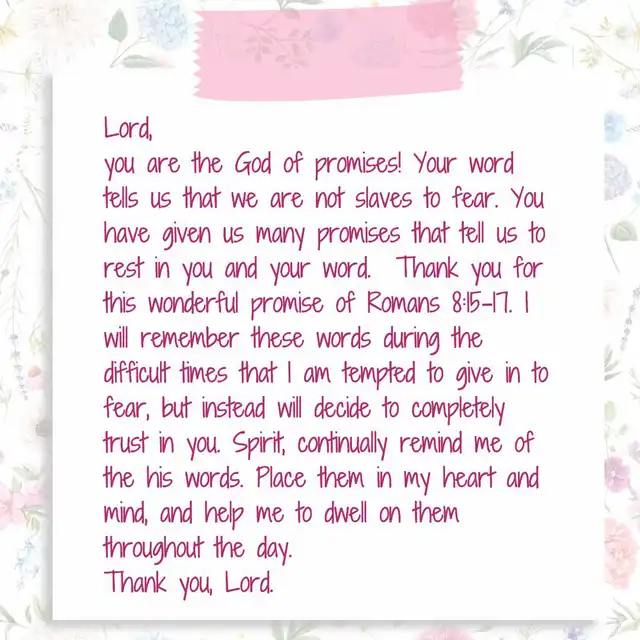 Lord,
you are the God of promises! Your word
tells us that we are not slaves to fear. You
have given us many promises that tell us to
rest in you and your word. Thank you for
this wonderful promise of Romans 8:15-17. I
will remember these words during the
difficult times that I am tempted to give in to
fear, but instead will decide to completely
trust in you. Spirit, continually remind me of
the his words. Place them in my heart and
mind, and help me to dwell on them
throughout the day.
Thank you, Lord.